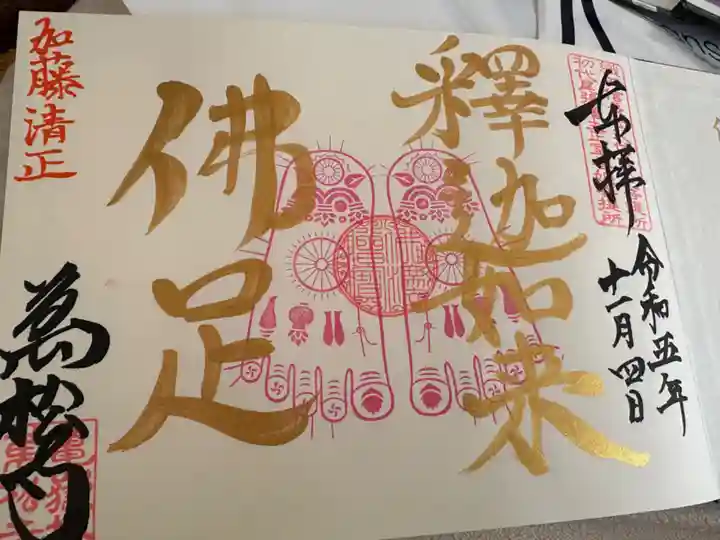 奉拝
令和五年
十一月四日
釋迦如来
佛足
加藤清正
萬松寺